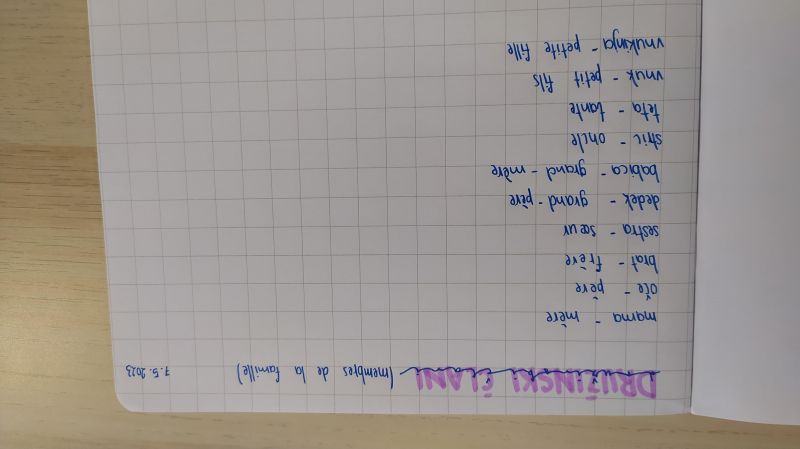 DRUŽINSKI ČLANI (membres de la famille) 7.5.2023
mama - mère
oče - père
brat - frère
sestra - sœur
dedek - grand-père
babica - grand-mère
stric - oncle
teta - tante
vnuk - petit fils
vnukinja - petite fille